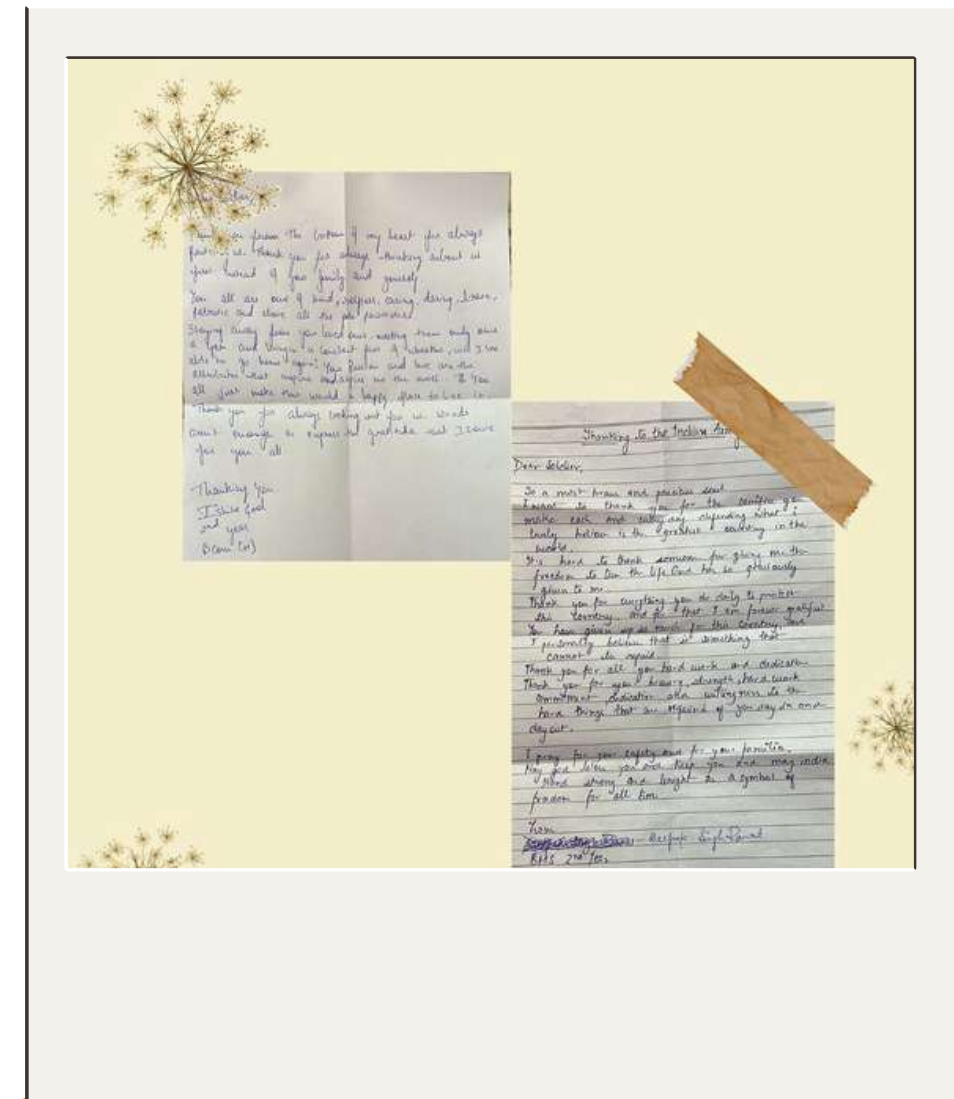 from the bottom of my heart for always
us. Thank you for always thinking about us
instead of your family and yourself
You all are one of kind, selfless, caring, daring, brave,
patriotic and above all the
Staying away from your loved ones, meeting them only once
a year and living in a constant fear of whether, will I be
able to go home again? Your Passion and love are the
attributes that inspire me the most. You
all just make this world a happy place to live in.
Thank you for always looking out for us. Words
aren't enough to express the gratitude that I have
for you all
Thanking You
Goel
2nd year
BCom (H)
Thanking to the Indian Army
Dear Soldier,
To a most brave and precious soul
I want to thank you for the sacrifice you
make each and every day defending what I
truly believe is the greatest country in the
world.
It's hard to thank someone for giving me the
freedom to live the life God has so graciously
given to me.
Thank you for everything you do daily to protect
this country, and for that I am forever grateful
You have given up so much for this country, and
I personally believe that is something that
cannot be repaid.
Thank you for all your hard work and dedication
Thank you for your bravery, strength, hard work
commitment dedication and willingness to the
hard things that are required of you day in and
day out.
I pray for your safety and for your families.
May God bless you and keep you and may india
stand strong and bright as a symbol of
freedom for all time.
From
Singh Rawat
BMS 2nd Year